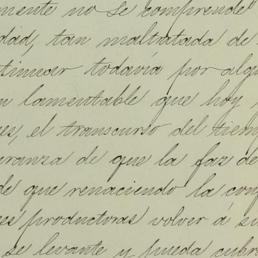 mente no se comprende"
dad, tan maltratada de
timear todavia por algu
n lamentable que hoy
es, el transcurso del tiem
eranza de que la faz de
de que renaciendo la conf
es productoras volver á su
se levante y pueda cubr